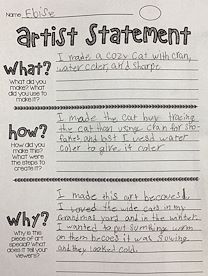 Name Ebise
Artist Statement
What?
What did you make? What did you use to make it?
I made a cozy cat with cran,
water coler, and sharpe
how?
How did you make this? What were the steps to create it?
I made the cat buy tracing
the cat than using cran for sha-
and last I uesd water
coler to give it coler
Why?
Why is this piece of art special? What does it tell your viewers?
I made this art becoves I
loved the wide cats in my
Grandmas yard and in the winter
I wanted to put sumthing worm
on them becoes it was snowing
and they looked cold.